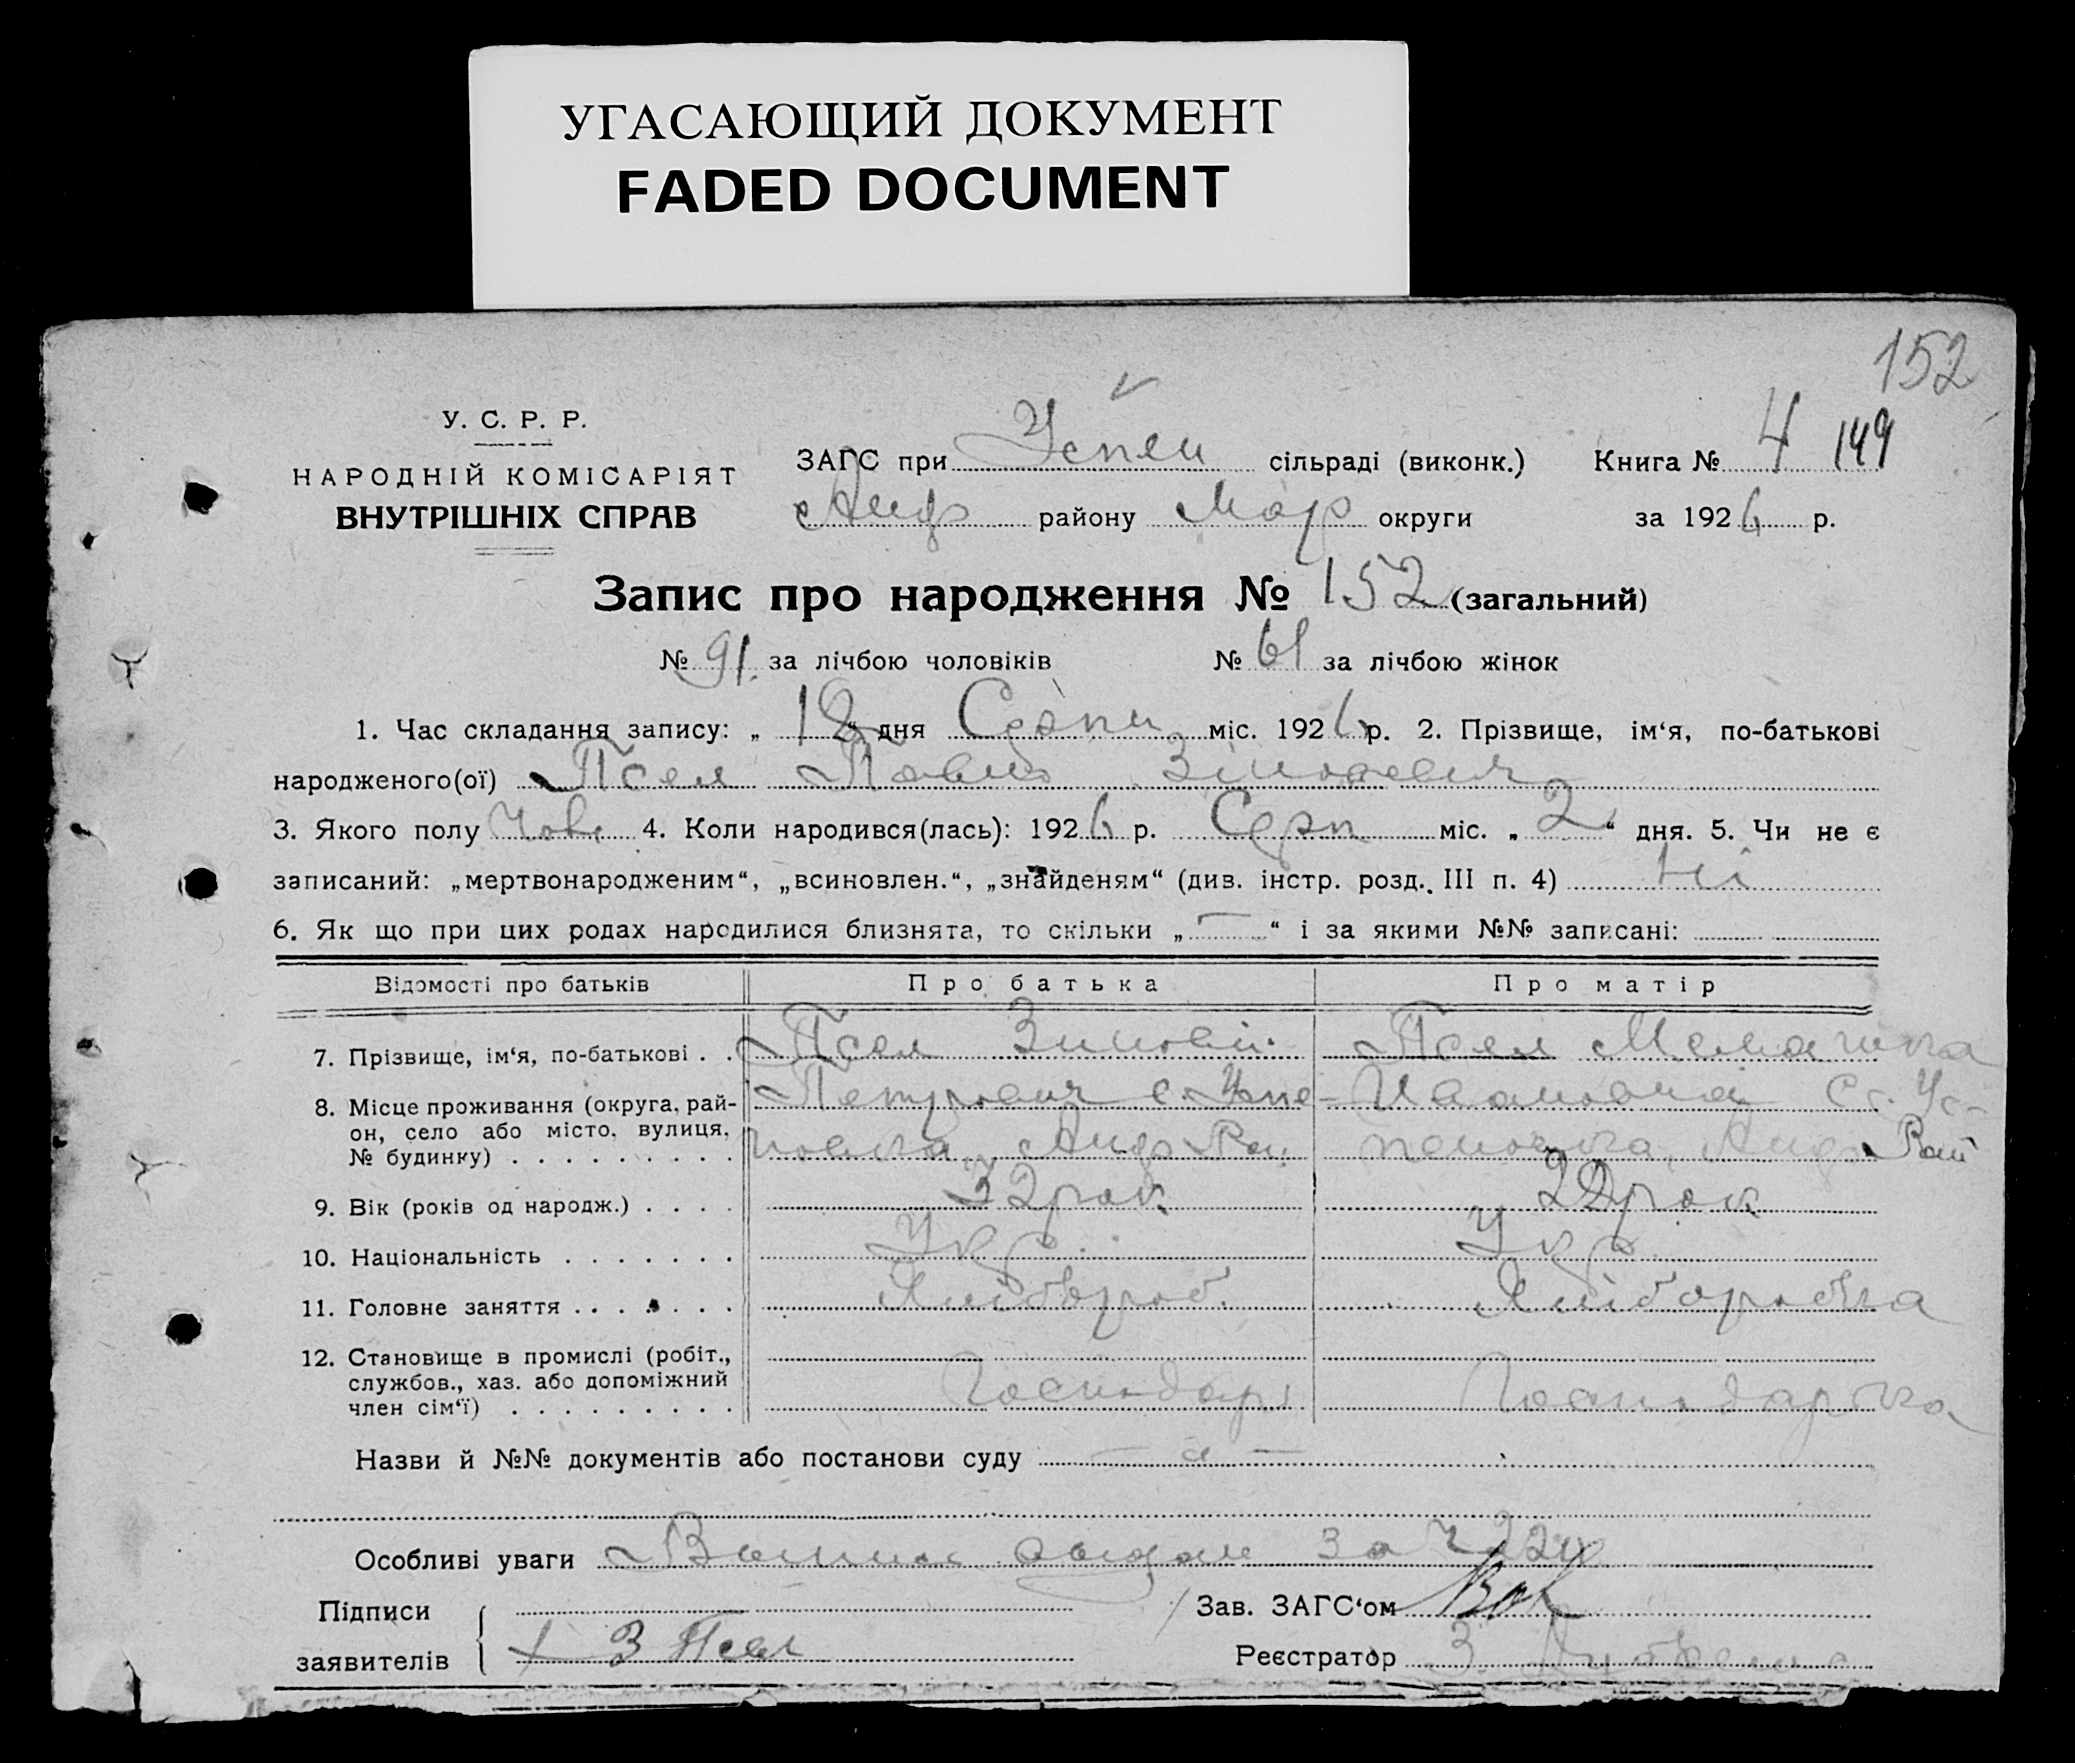 УГАСАЮЩИЙ ДОКУМЕНТ
FADED DOCUMENT
152
У. С. Р. Р.
НАРОДНІЙ КОМІСАРІЯТ
ВНУТРІШНІХ СПРАВ
ЗАГС при Успен сільраді (виконк.) Книга № 4 149
Андр району Мар округи за 1926 р.
Запис про народження № 152 (загальний)
№ 91. за лічбою чоловіків № 61 за лічбою жінок
1. Час складання запису: „ 12 “ дня Серпн міс. 1926 р. 2. Прізвище, ім‘я, по-батькові
народженого(ої) Псел Павло Зіновеевич
3. Якого полу Чов. 4. Коли народився(лась): 1926 р. Серп міс. „ 2 “ дня. 5. Чи не є
записаний: „мертвонародженим“, „всиновлен.“, „знайденям“ (див. інстр. розд. III п. 4) Ні
6. Як що при цих родах народилися близнята, то скільки „ — “ і за якими №№ записані:
Відомості про батьків Про батька Про матір
7. Прізвище, ім‘я, по-батькові . . Псел Зиновій Псел Меланка
8. Місце проживання (округа, рай- Петрович с. Успе- Ивановна С. Ус-
он, село або місто, вулиця,
№ будинку) . . . . . . . . . новка Андр Рай пеновка, Андр Рай
9. Вік (років од народж.) . . . . 32 рок 22 рок
10. Національність . . . . . . . Укр. Укр
11. Головне заняття . . . . . . . Хлібороб. Хліборобка
12. Становище в промислі (робіт.,
службов., хаз. або допоміжний
член сім‘ї) . . . . . . . . . Господарь Господарка
Назви й №№ документів або постанови суду —
Особливі уваги за
Підписи Зав. ЗАГС‘ом
заявителів + З Псел Реєстратор З.